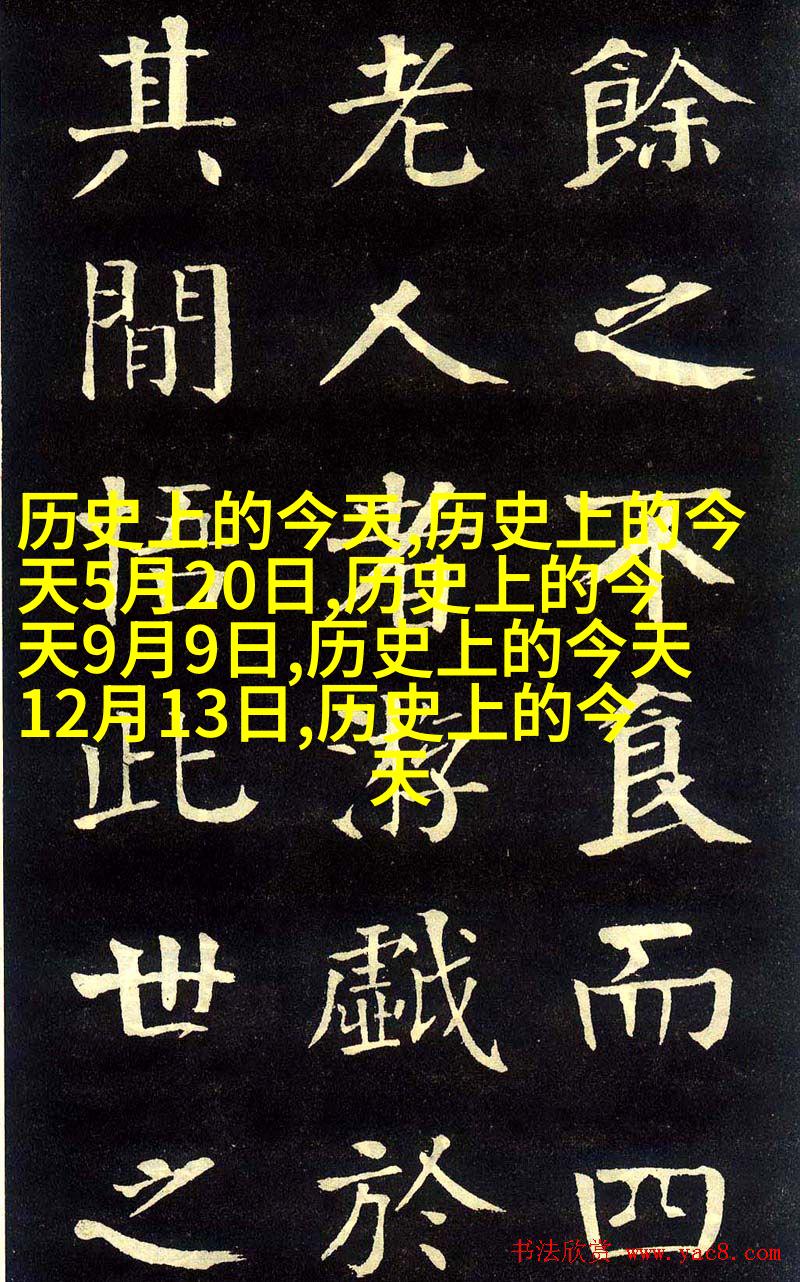 餘之不食而四
老人者游戲於
其間悟此世之
历史上的今天,历史上的今
天5月20日,历史上的今
天9月9日,历史上的今天
12月13日,历史上的今
天
书法欣赏 www.yac8.com